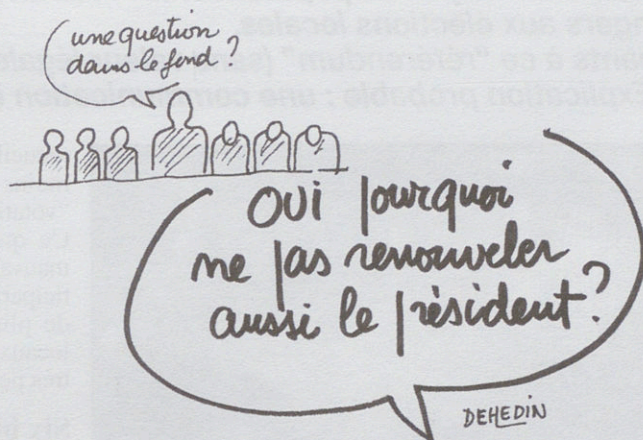 une question
dans le fond ?
OUI pourquoi
ne pas renouveler
aussi le président ?
DEHEDIN